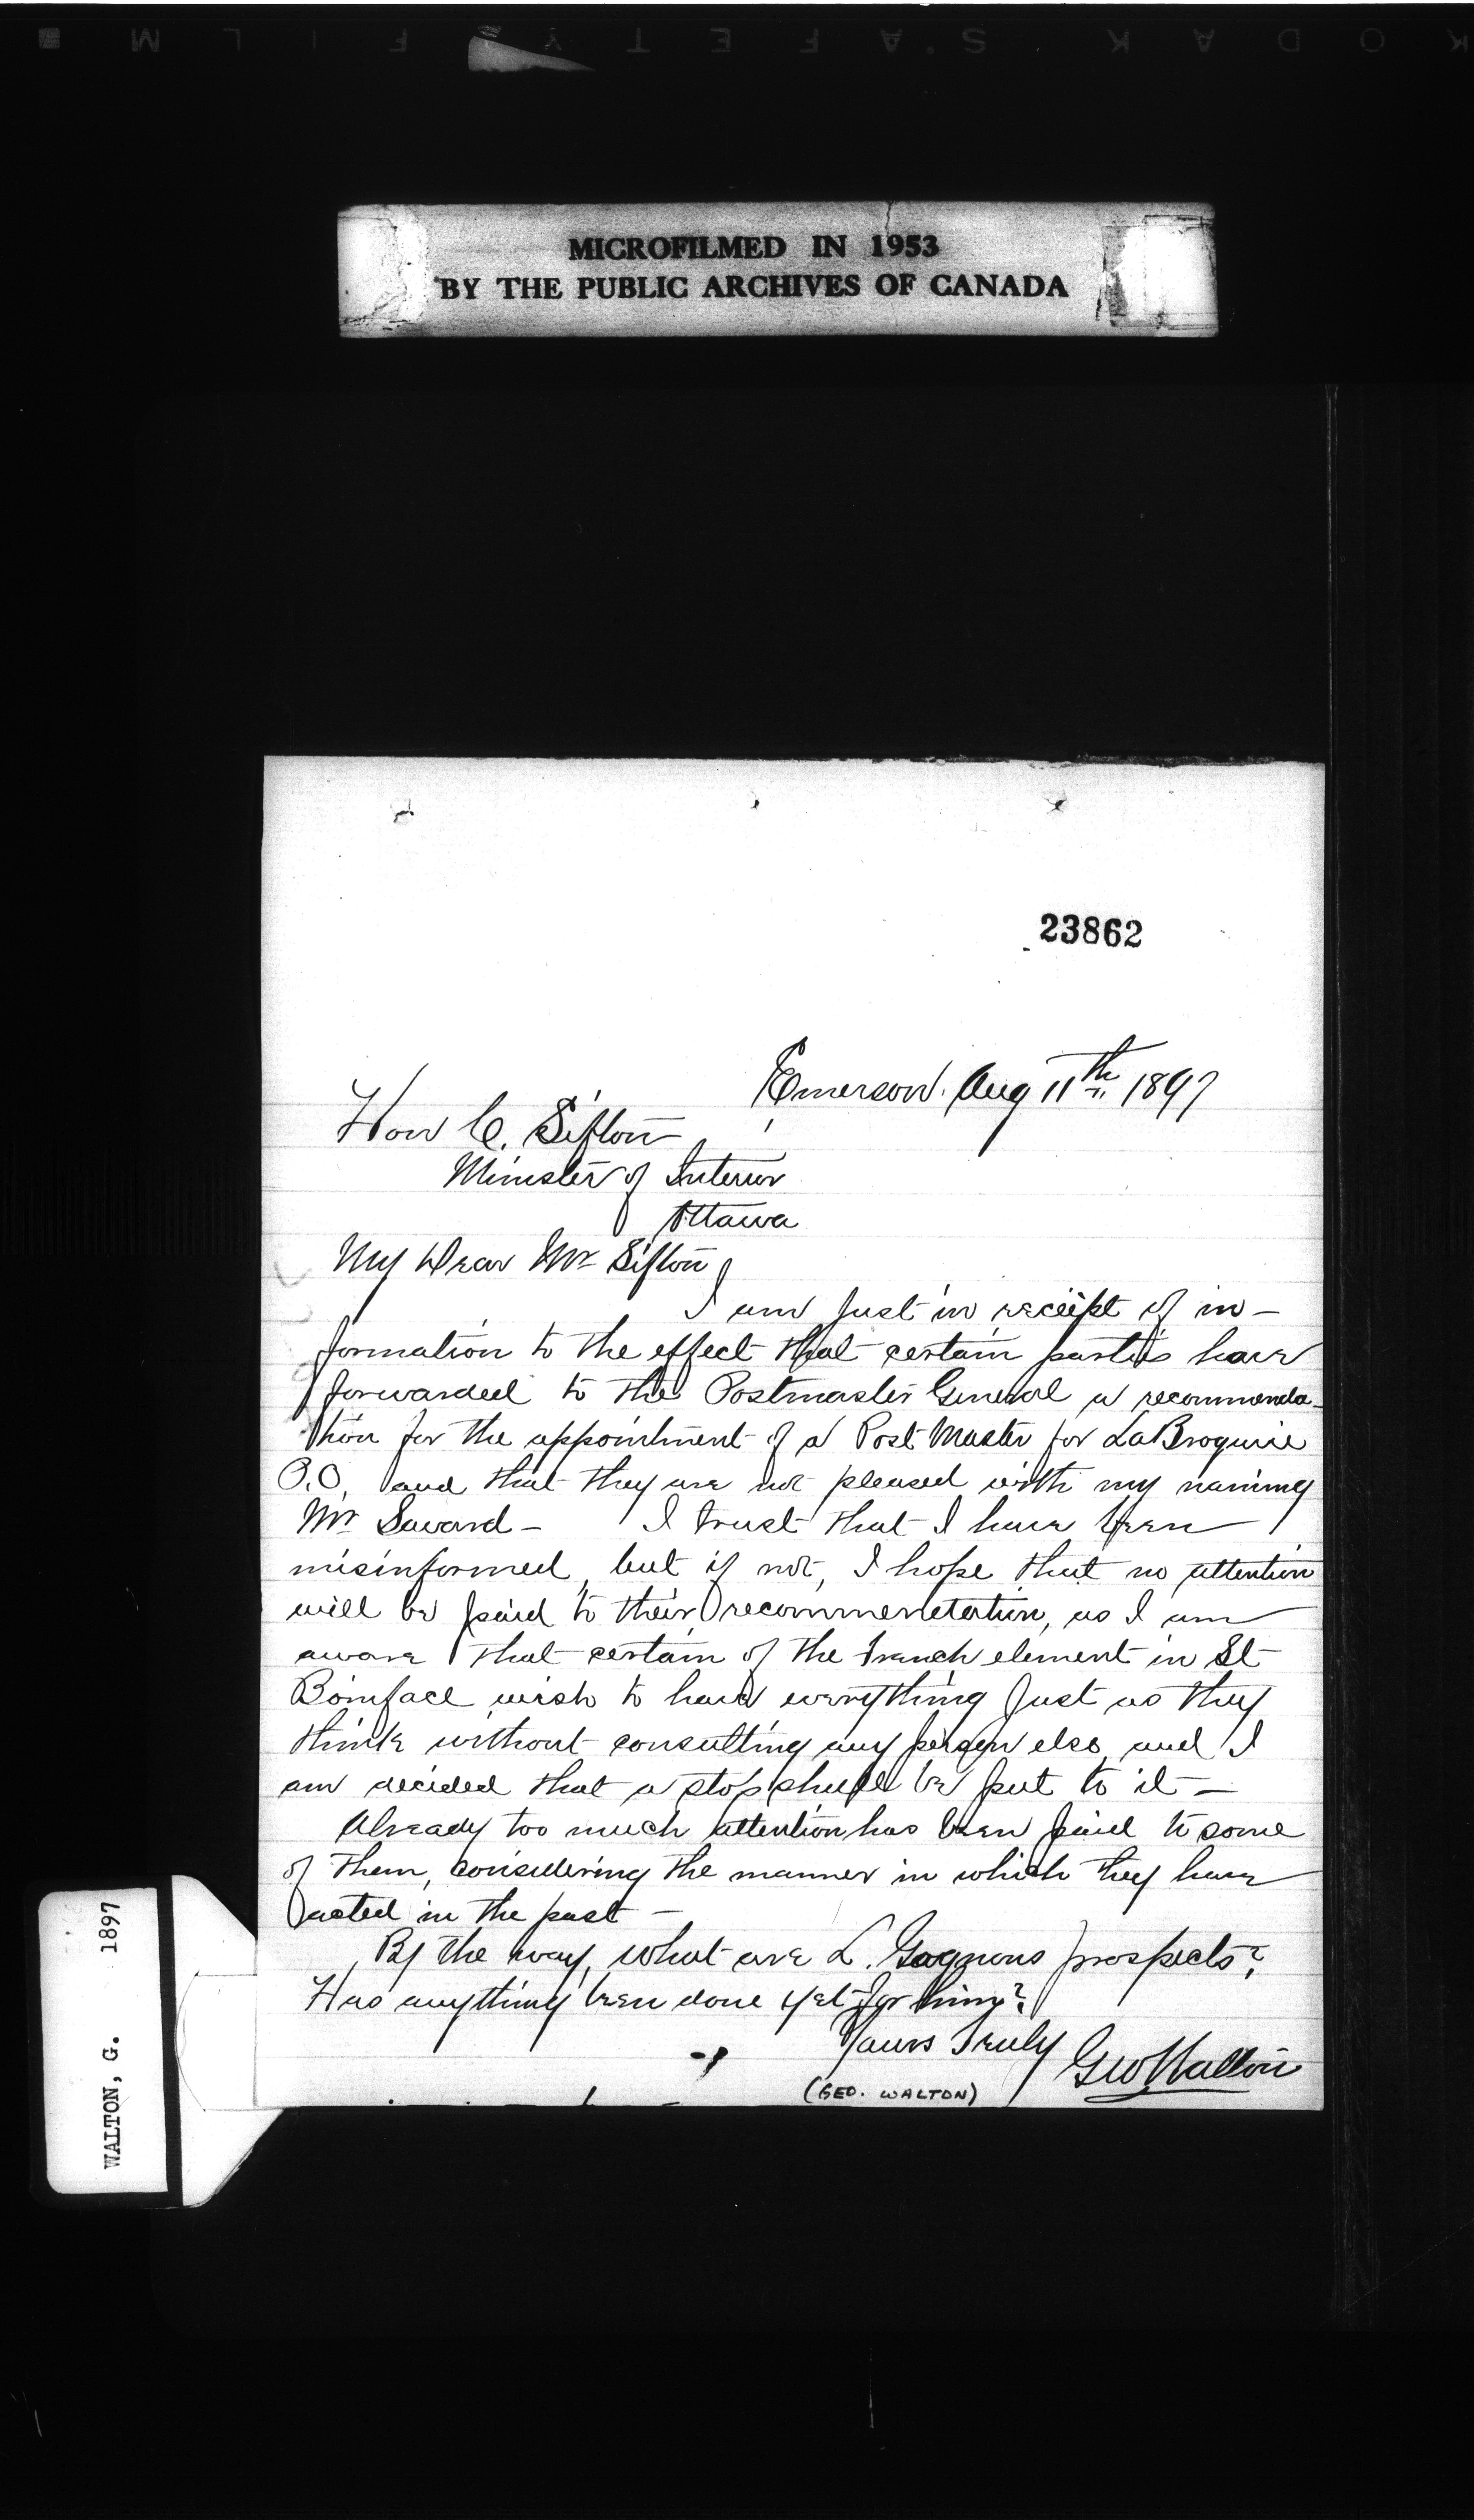 KODAK SAFETY FILM
MICROFILMED IN 1953
BY THE PUBLIC ARCHIVES OF CANADA
23862
Emerson. Aug 11th 1897
Hon C. Sifton
Minister of Interior
Ottawa
My Dear Mr Sifton
I am just in receipt of in-
formation to the effect that certain parties have
forwarded to the Postmaster General a recommenda-
tion for the appointment of a Post Master for LaBroquerie
P.O. and that they are not pleased with my naming
Mr Savard - I trust that I have been
misinformed, but if not, I hope that no attention
will be paid to their recommendation, as I am
aware that certain of the French element in St
Boniface wish to have everything just as they
think without consulting any person else, and I
am decided that a stop shall be put to it -
Already too much attention has been paid to some
of them, considering the manner in which they have
acted in the past -
By the way, what are L. Gagnons prospects?
Has anything been done yet for him?
Yours Truly
Geo Walton
(GEO. WALTON)
WALTON, G. 1897